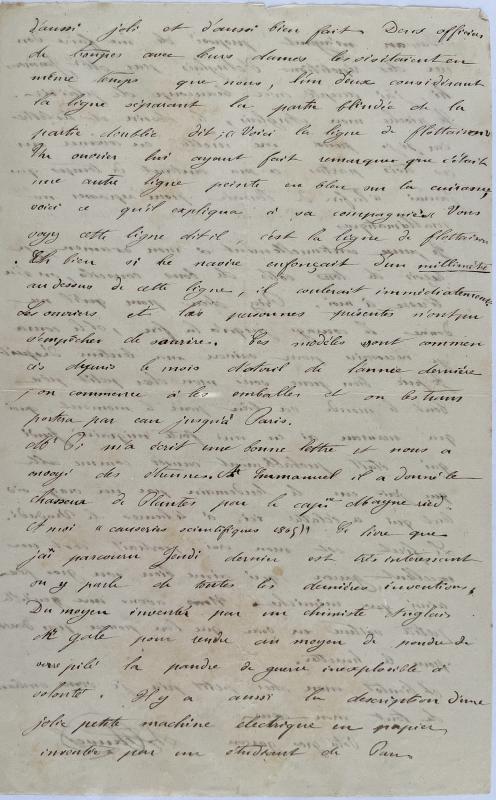 d'aussi joli et d'aussi bien fait. Deux officiers
de troupes avec leurs dames les visitaient en
même temps que nous, l'un d'eux considérant
la ligne séparant la partie blindée de la
partie doublée dit ; Voici la ligne de flottaison
Un ouvrier lui ayant fait remarquer que c'était
une autre ligne peinte en bleu sur la cuirasse,
voici ce qu'il expliqua à sa compagnie. Vous
voyez cette ligne dit il, c'est la ligne de flottaison
Eh bien si le navire enfonçait d'un millimètre
au dessus de cette ligne, il coulerait immédiatement
Les ouvriers et les personnes présentes n'ont pu
s'empêcher de sourire. Ces modèles sont commen
cés depuis le mois d'avril de l'année dernière
on commence à les emballer et on les trans
portera par eau jusqu'à Paris.
Mr Pi m'a écrit une bonne lettre et nous a
envoyé des étrennes. A Emmanuel il a donné le
chasseur de Plantes par le capne Mayne ried.
A moi "causeries scientifiques 1865)" Ce livre que
j'ai parcouru Jeudi dernier est très intéressant
on y parle de toutes les dernières inventions,
Du moyen inventé par un chimiste Anglais
Mr Gale pour rendre au moyen de poudre de
verre pilé la poudre de guerre inexplosible à
volonté. Il y a aussi la description d'une
jolie petite machine électrique en papier
inventée par un étudiant de Paris